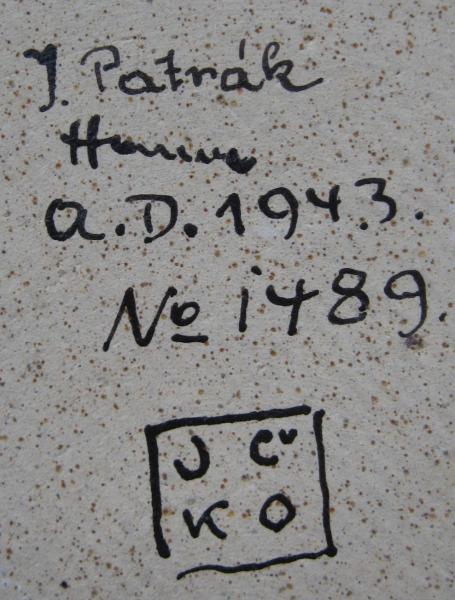 J. Patrák
a.D. 1943.
No 1489.
J C
K O